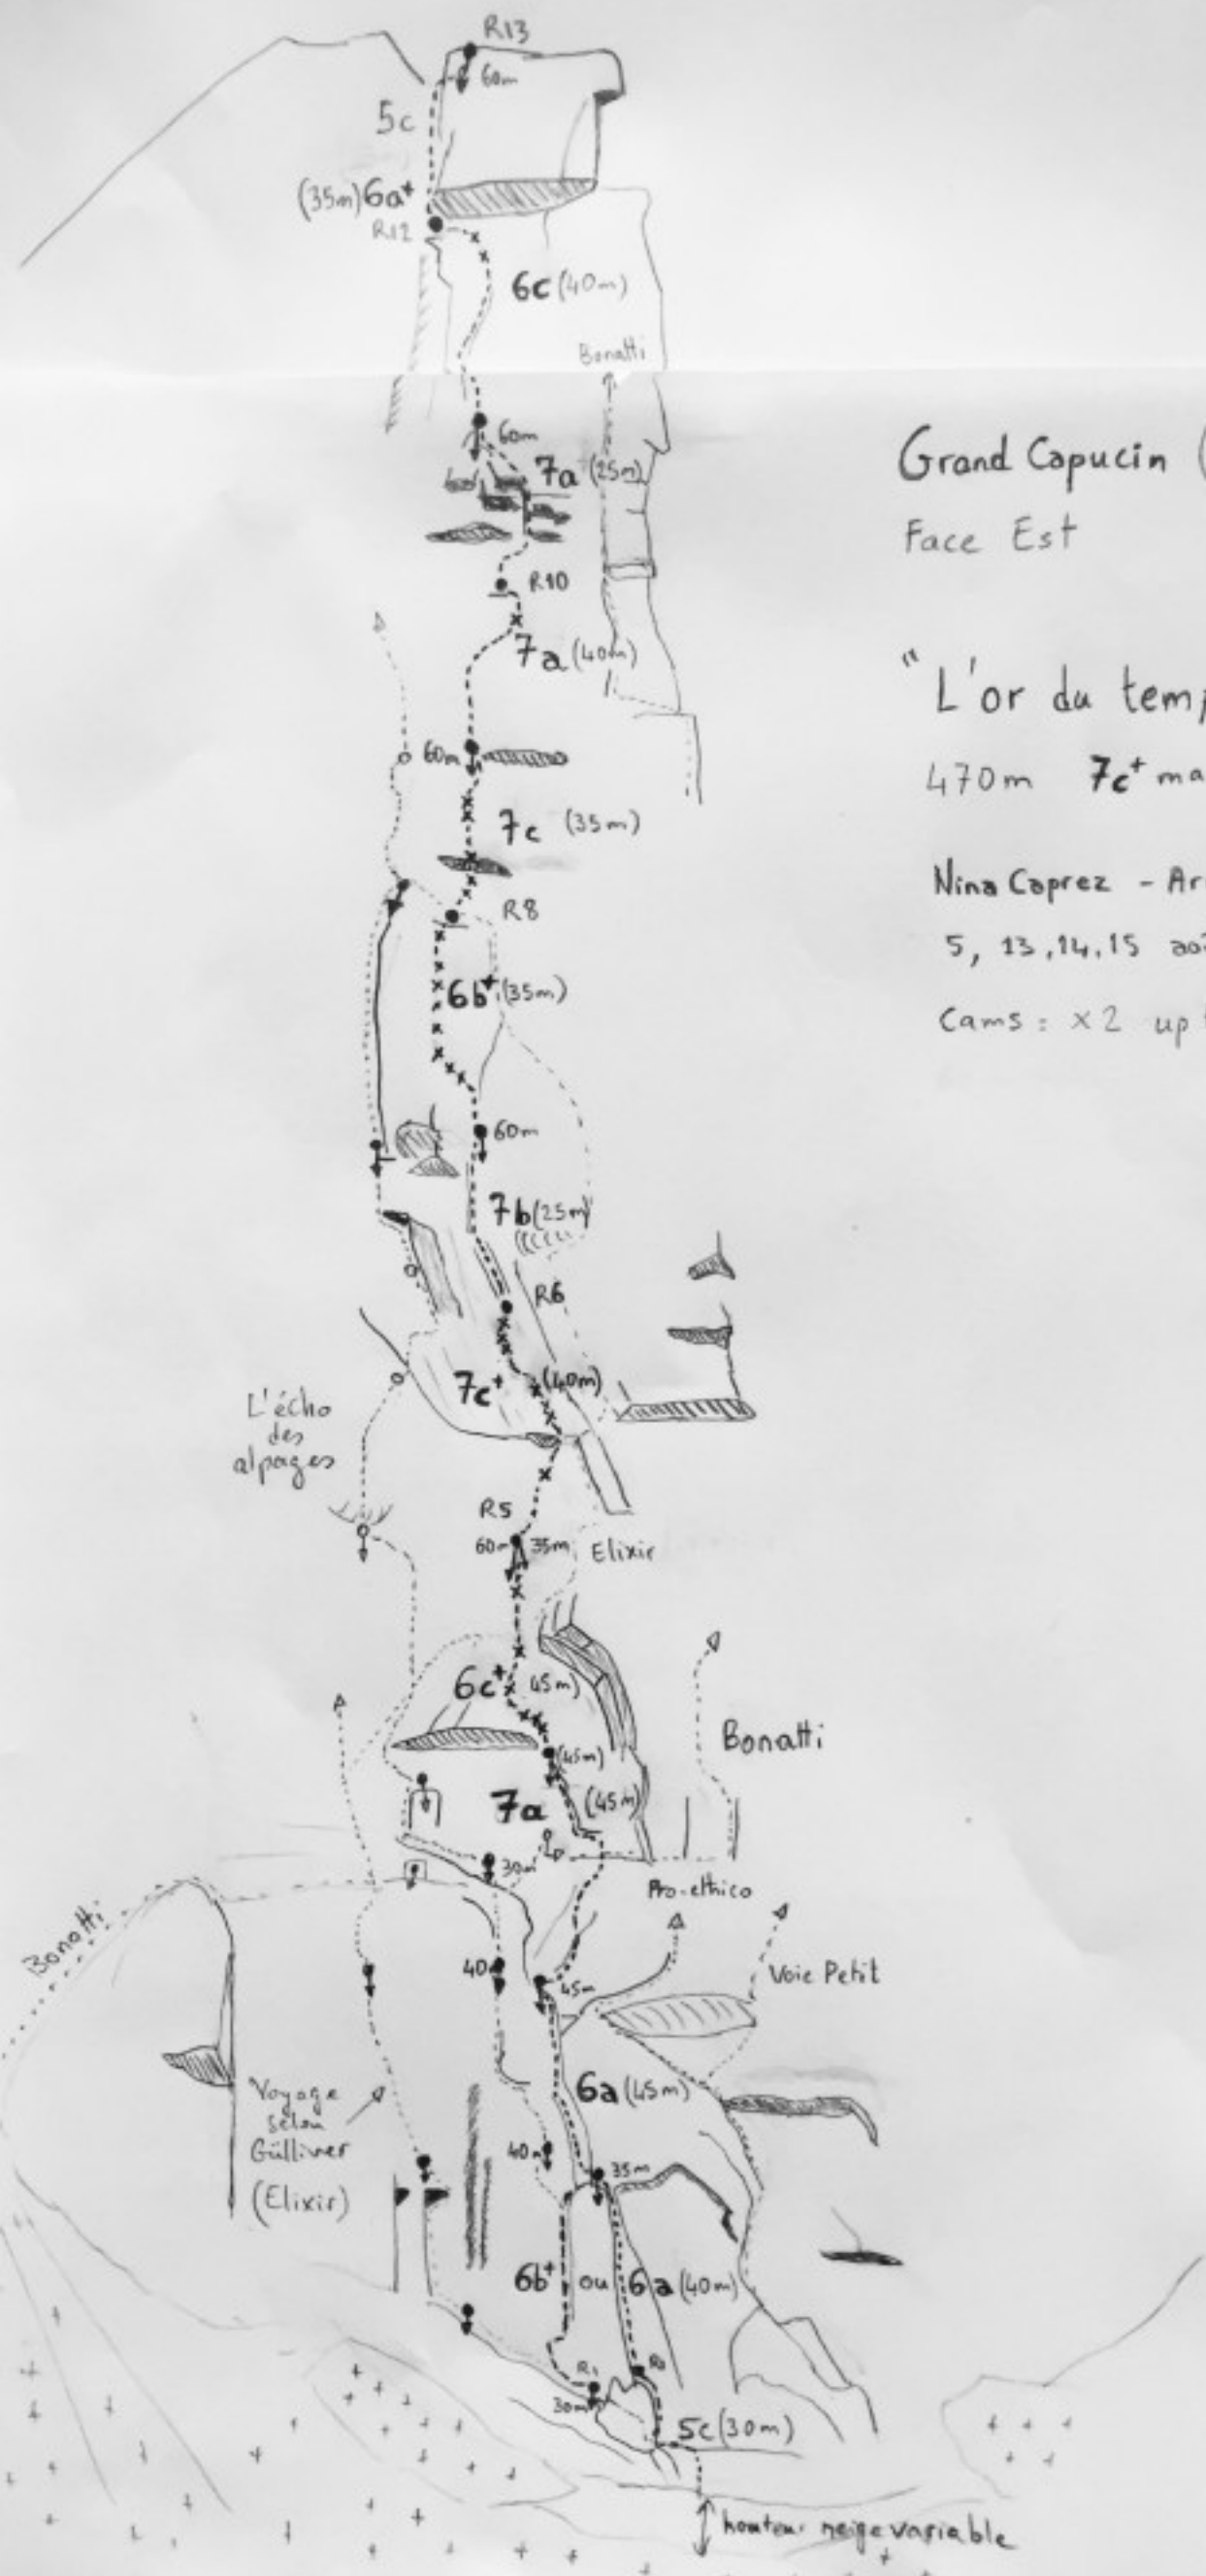 R13
60m
5c
(35m) 6a+
R12
6c (40m)
Bonatti
60m
7a (25m)
R10
7a (40m)
60m
7c (35m)
R8
6b+ (35m)
60m
7b (25m)
R6
7c+ (40m)
L'écho
des
alpages
R5
60m 35m
Elixir
6c+ 45m)
(45m)
7a (45m)
Bonatti
30m
Pro-ethico
Bonatti
40
45m
Voie Petit
6a (45m)
Voyage
selon
Gülliver
(Elixir)
40m
35m
6b+ ou 6a (40m)
30m
5c (30m)
hauteur neige variable
Grand Capucin (
Face Est
"L'or du temp
470m 7c+ ma
Nina Caprez - Ar
5, 13, 14, 15 aoû
Cams : x2 up